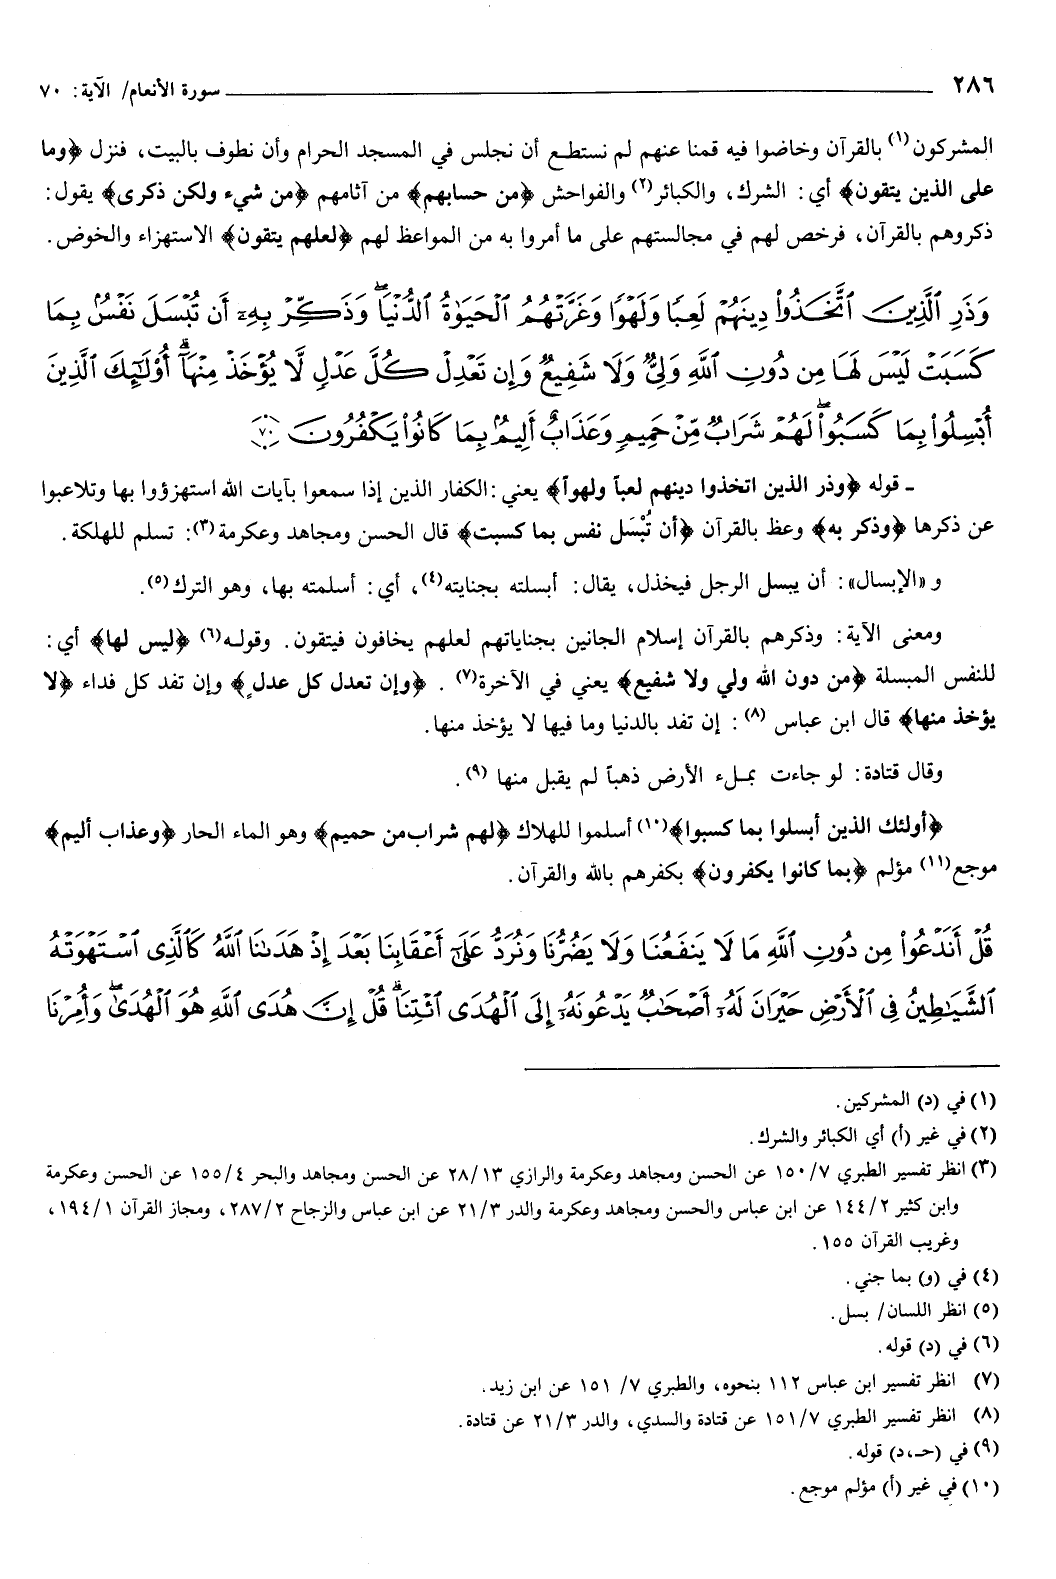 ٢٨٦ سورة الأنعام/ الآية: ٧٠
المشركون(١) بالقرآن وخاضوا فيه قمنا عنهم لم نستطع أن نجلس في المسجد الحرام وأن نطوف بالبيت، فنزل ﴿وما
على الذين يتقون﴾ أي: الشرك، والكبائر(٢) والفواحش ﴿من حسابهم﴾ من آثامهم ﴿من شيء ولكن ذكرى﴾ يقول:
ذكروهم بالقرآن، فرخص لهم في مجالستهم على ما أمروا به من المواعظ لهم ﴿لعلهم يتقون﴾ الاستهزاء والخوض.
وَذَرِ ٱلَّذِينَ ٱتَّخَذُوا۟ دِينَهُمْ لَعِبًا وَلَهْوًا وَغَرَّتْهُمُ ٱلْحَيَوٰةُ ٱلدُّنْيَا ۚ وَذَكِّرْ بِهِۦٓ أَن تُبْسَلَ نَفْسٌۢ بِمَا
كَسَبَتْ لَيْسَ لَهَا مِن دُونِ ٱللَّهِ وَلِىٌّ وَلَا شَفِيعٌ وَإِن تَعْدِلْ كُلَّ عَدْلٍ لَّا يُؤْخَذْ مِنْهَآ ۗ أُو۟لَـٰٓئِكَ ٱلَّذِينَ
أُبْسِلُوا۟ بِمَا كَسَبُوا۟ ۖ لَهُمْ شَرَابٌ مِّنْ حَمِيمٍ وَعَذَابٌ أَلِيمٌۢ بِمَا كَانُوا۟ يَكْفُرُونَ ٧٠
- قوله ﴿وذر الذين اتخذوا دينهم لعباً ولهواً﴾ يعني: الكفار الذين إذا سمعوا بآيات الله استهزؤوا بها وتلاعبوا
عن ذكرها ﴿وذكر به﴾ وعظ بالقرآن ﴿أن تُبْسَل نفس بما كسبت﴾ قال الحسن ومجاهد وعكرمة(٣): تسلم للهلكة.
و «الإبسال»: أن يبسل الرجل فيخذل، يقال: أبسلته بجنايته(٤)، أي: أسلمته بها، وهو الترك(٥).
ومعنى الآية: وذكرهم بالقرآن إسلام الجانين بجناياتهم لعلهم يخافون فيتقون. وقوله(٦) ﴿ليس لها﴾ أي:
للنفس المبسلة ﴿من دون الله ولي ولا شفيع﴾ يعني في الآخرة(٧). ﴿وإن تعدل كل عدل﴾ وإن تفد كل فداء ﴿لا
يؤخذ منها﴾ قال ابن عباس(٨): إن تفد بالدنيا وما فيها لا يؤخذ منها.
وقال قتادة: لو جاءت بملء الأرض ذهباً لم يقبل منها(٩).
﴿أولئك الذين أبسلوا بما كسبوا﴾(١٠) أسلموا للهلاك ﴿لهم شراب من حميم﴾ وهو الماء الحار ﴿وعذاب أليم﴾
موجع(١١) مؤلم ﴿بما كانوا يكفرون﴾ بكفرهم بالله والقرآن.
قُلْ أَنَدْعُوا۟ مِن دُونِ ٱللَّهِ مَا لَا يَنفَعُنَا وَلَا يَضُرُّنَا وَنُرَدُّ عَلَىٰٓ أَعْقَابِنَا بَعْدَ إِذْ هَدَىٰنَا ٱللَّهُ كَٱلَّذِى ٱسْتَهْوَتْهُ
ٱلشَّيَـٰطِينُ فِى ٱلْأَرْضِ حَيْرَانَ لَهُۥٓ أَصْحَـٰبٌ يَدْعُونَهُۥٓ إِلَى ٱلْهُدَى ٱئْتِنَا ۗ قُلْ إِنَّ هُدَى ٱللَّهِ هُوَ ٱلْهُدَىٰ ۖ وَأُمِرْنَا
(١) في (د) المشركين.
(٢) في غير (أ) أي الكبائر والشرك.
(٣) انظر تفسير الطبري ١٥٠/٧ عن الحسن ومجاهد وعكرمة والرازي ٢٨/١٣ عن الحسن ومجاهد والبحر ١٥٥/٤ عن الحسن وعكرمة
وابن كثير ١٤٤/٢ عن ابن عباس والحسن ومجاهد وعكرمة والدر ٢١/٣ عن ابن عباس والزجاج ٢٨٧/٢، ومجاز القرآن ١٩٤/١،
وغريب القرآن ١٥٥.
(٤) في (و) بما جني.
(٥) انظر اللسان/ بسل.
(٦) في (د) قوله.
(٧) انظر تفسير ابن عباس ١١٢ بنحوه، والطبري ٧/ ١٥١ عن ابن زيد.
(٨) انظر تفسير الطبري ١٥١/٧ عن قتادة والسدي، والدر ٢١/٣ عن قتادة.
(٩) في (حـ،د) قوله.
(١٠) في غير (أ) مؤلم موجع.